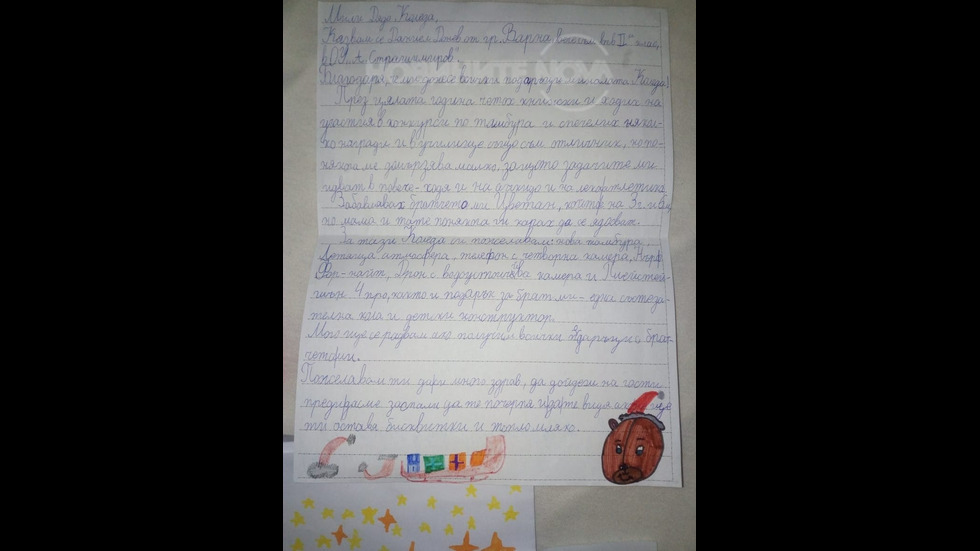 Мили Дядо Коледа,
Казвам се Даниел Донев от гр. Варна и съм във IIри клас,
в ОУ „А. Страшимиров".
Благодаря, че ми донесе всички подаръци миналата Коледа!
През цялата година четох книжки и ходих на
участия в конкурси по тамбура и спечелих някол-
ко награди и в училище също съм отличник, но по-
някога ме домързява малко, защото задачите ми
идват в повече - ходя и на айкидо и на лекоатлетика
Забавлявах братчето ми Цветан, който на 3 г.
но мама и тате понякога ги карах да се ядосват.
За тази Коледа си пожелавам: нова тамбура,
атмосфера, телефон с четворна камера, Нърф
Фор-найт, Дрон с водоустойчива камера и Плейстей-
шън 4 про, както и подарък за брат ми - една състеза-
телна кола и детски конструктор.
Много ще се радвам ако получим всички подаръци с брат-
чето ми.
Пожелавам ти дядо много здраве, да дойдеш на гости
преди да сме заспали да те почерпя и да те видя
ти оставя бисквитки и топло мляко.
НОВИНИТЕ NOVA